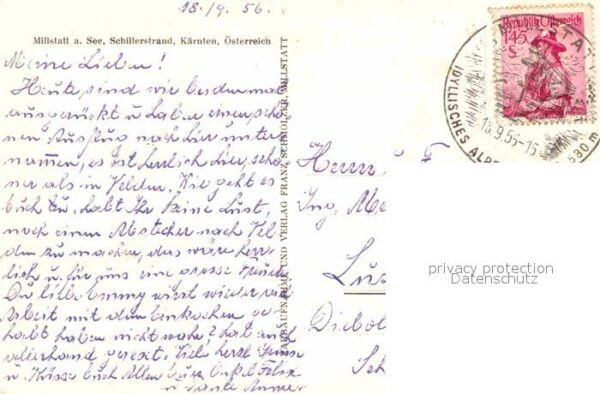 18./9. 56.
Millstatt a. See, Schillerstrand, Kärnten, Österreich
Meine Lieben!
Heute sind wir
ausgerückt u. haben einen schö-
nen Ausflug nach hier unter-
nommen, es ist herrlich hier, schö-
ner als in Velden. Wie geht es
Euch zu, habt Ihr keine Lust,
noch einen Abstecher nach Vel-
den zu machen, das wäre herr-
lich u. für uns eine grosse Freude
Du liebe Emmy wirst wieder viel
Arbeit mit dem Einkochen ge-
habt haben nicht wahr? hat auch
allerhand gereist. Viele herzl. Grüsse
u. Küsse Euch Allen Euer Onkel Felix
u Tante Anna
FARBENAUFNAHME UND VERLAG FRANZ SCHMÖLZER, MILLSTATT
Republik Österreich
1.45
S
MILLSTATT
IDYLLISCHES ALPE
18.9.56-15
580 m
Herrn u. F
Ing. Me
Luz
Diebol
Sch
privacy protection
Datenschutz